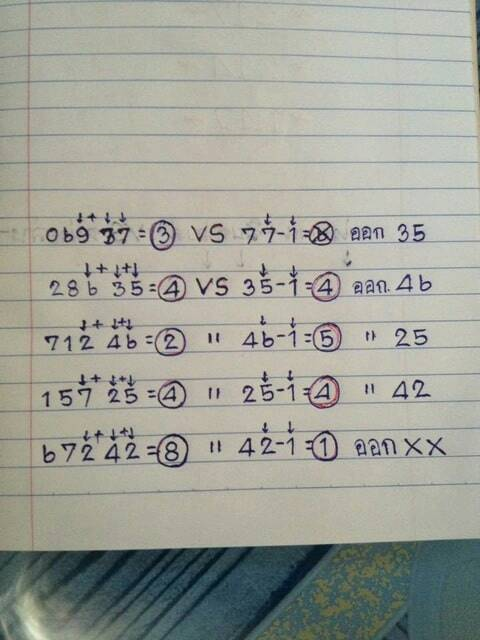 069 77=3 VS 77-1=6 ออก 35
286 35=4 VS 35-1=4 ออก. 46
712 46=2 " 46-1=5 " 25
157 25=4 " 25-1=4 " 42
672 42=8 " 42-1=1 ออก XX